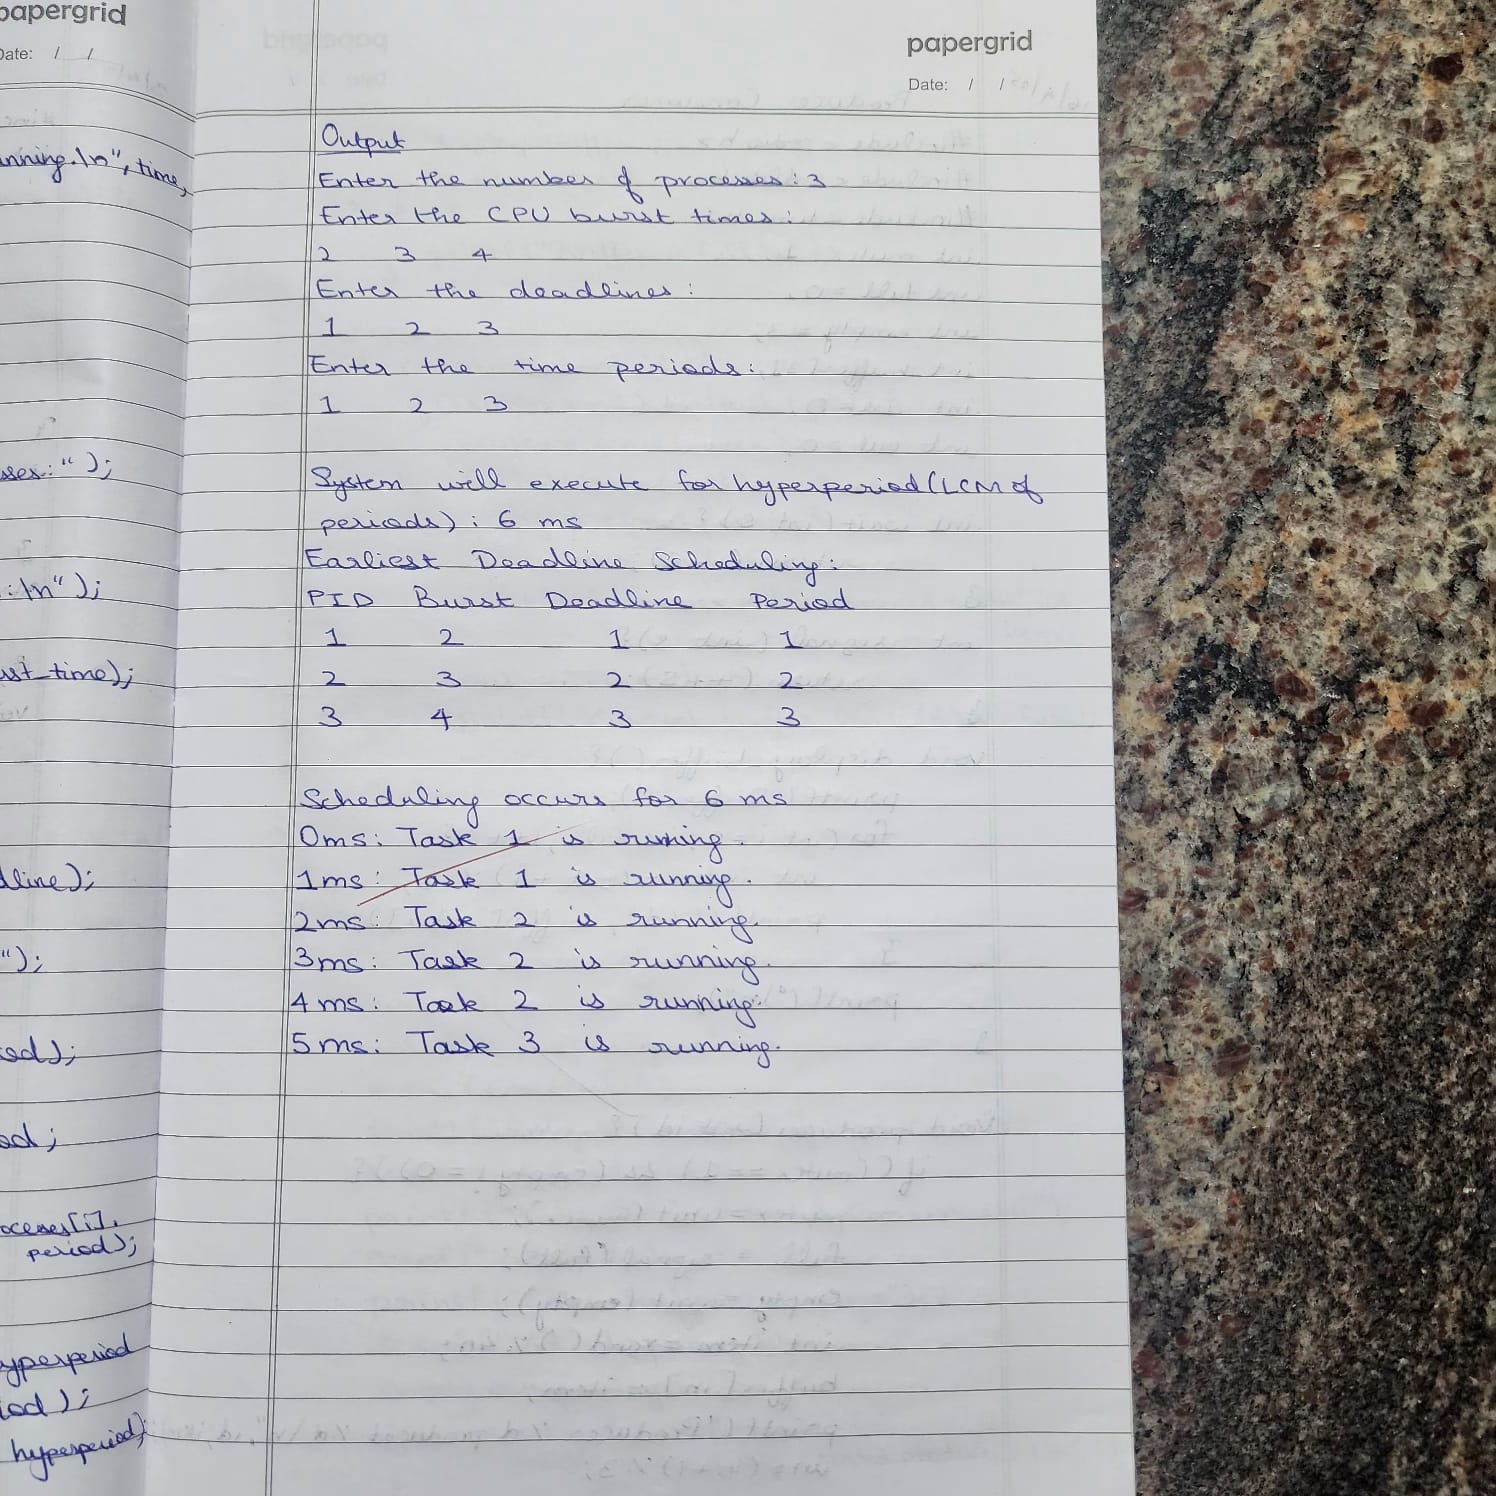 papergrid
Date: / /
nning.\n", time,
sses:" );
:\n");
ust_time);
dline);
");
iod);
od;
ocesses[i].
period);
hyperperiod
iod );
hyperperiod);
papergrid
Date: / /
Output
Enter the number of processes: 3
Enter the CPU burst times:
2 3 4
Enter the deadlines:
1 2 3
Enter the time periods:
1 2 3
System will execute for hyperperiod (LCM of
periods) : 6 ms
Earliest Deadline Scheduling:
PID Burst Deadline Period
1 2 1 1
2 3 2 2
3 4 3 3
Scheduling occurs for 6 ms
0ms: Task 1 is running.
1ms: Task 1 is running.
2ms: Task 2 is running.
3ms: Task 2 is running.
4ms: Task 2 is running.
5ms: Task 3 is running.